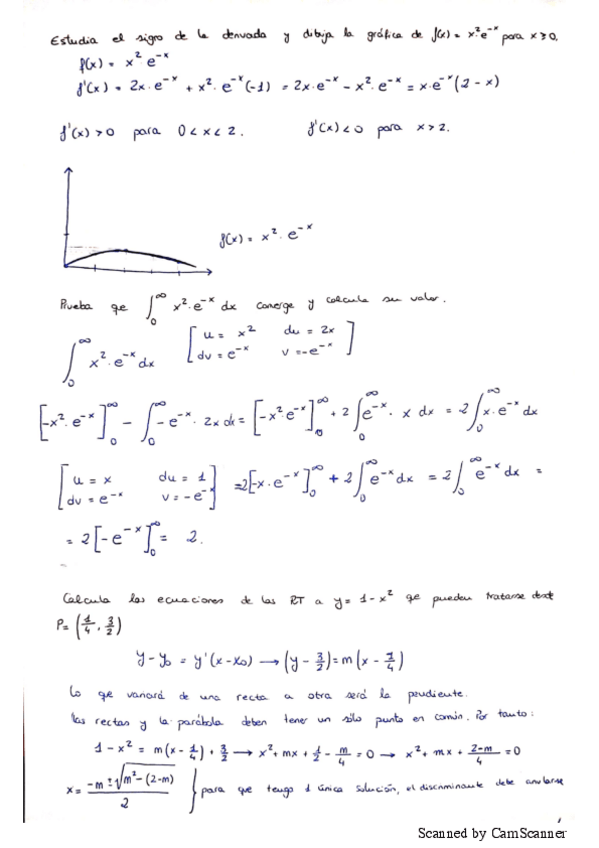 Estudia el signo de la derivada y dibuja la gráfica de f(x) = x²·e^-x para x ≥ 0.
f(x) = x² e^-x
f'(x) = 2x·e^-x + x²·e^-x(-1) = 2x·e^-x - x²·e^-x = x·e^-x(2 - x)
f'(x) > 0 para 0 < x < 2. f'(x) < 0 para x > 2.
f(x) = x²·e^-x
Prueba que ∫₀^∞ x²·e^-x dx converge y calcula su valor.
∫₀^∞ x²·e^-x dx [u = x² du = 2x
dv = e^-x v = -e^-x]
[-x²·e^-x]₀^∞ - ∫₀^∞ -e^-x·2x dx = [-x²e^-x]₀^∞ + 2∫₀^∞ e^-x·x dx = 2∫₀^∞ x·e^-x dx
[u = x du = 1
dv = e^-x v = -e^-x] = 2[-x·e^-x]₀^∞ + 2∫₀^∞ e^-x dx = 2∫₀^∞ e^-x dx =
= 2[-e^-x]₀^∞ = 2.
Calcula las ecuaciones de las RT a y = 1 - x² qe pueden tratarse desde
P = (1/4, 3/2)
y - y₀ = y'(x - x₀) → (y - 3/2) = m(x - 1/4)
Lo qe variará de una recta a otra será la pendiente.
Las rectas y la parábola deben tener un sólo punto en común. Por tanto:
1 - x² = m(x - 1/4) + 3/2 → x² + mx + 1/2 - m/4 = 0 → x² + mx + (2-m)/4 = 0
x = (-m ± √(m² - (2-m)))/2 } para que tenga 1 única solución, el discriminante debe anularse
Scanned by CamScanner